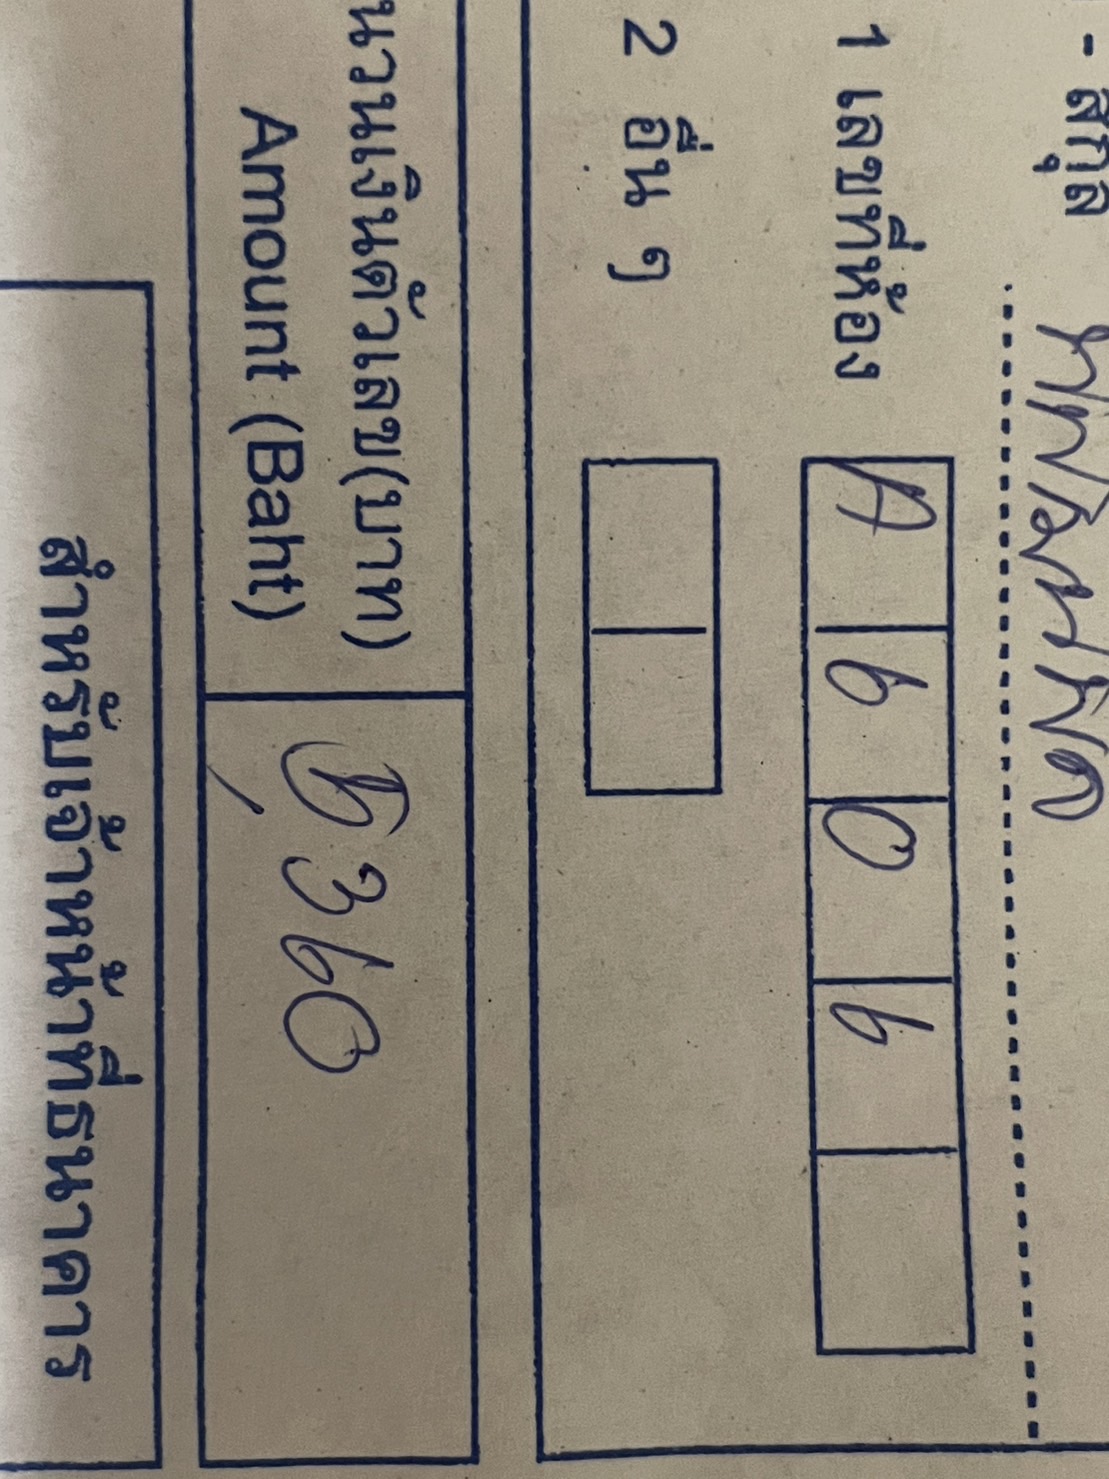 - สกุล
1 เลขที่ห้อง A 6 0 6
2 อื่น ๆ
นวนเงินตัวเลข(บาท)
Amount (Baht) 5,360
สำหรับเจ้าหน้าที่ธนาคาร